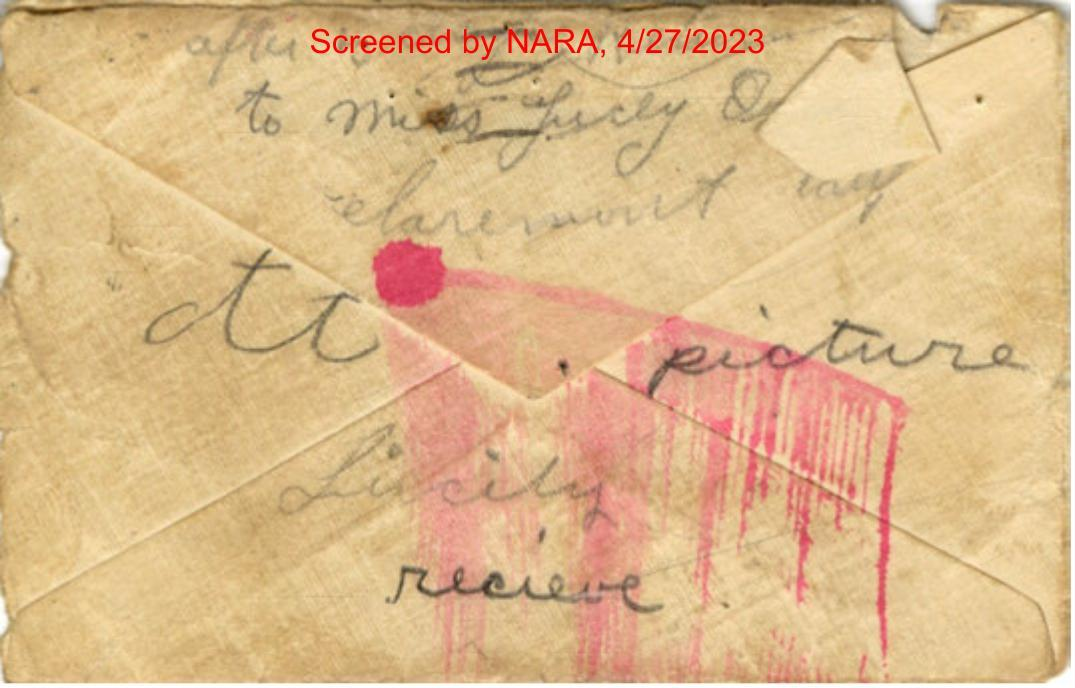 Screened by NARA, 4/27/2023
after
to Miss Lucy
claremont
picture
Lucily
recieve